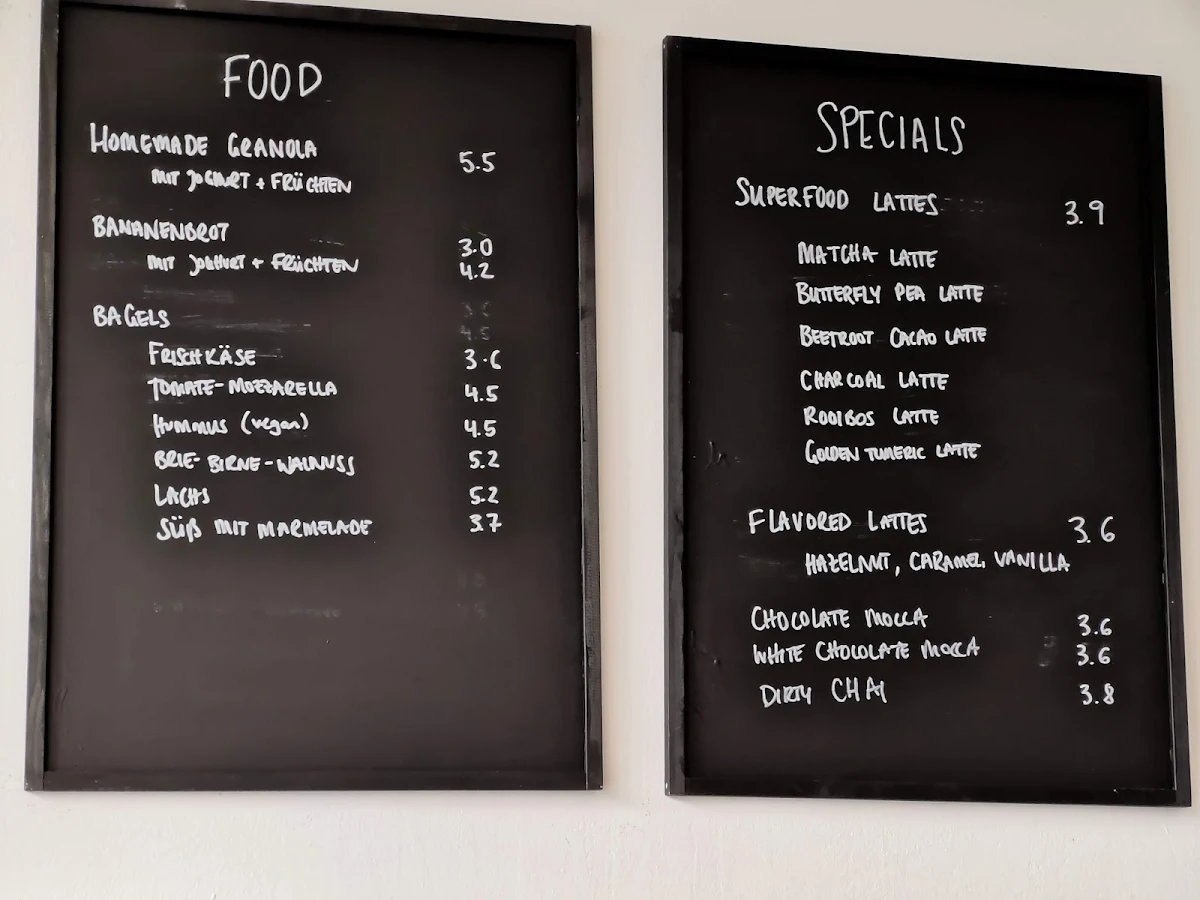 FOOD
HOMEMADE GRANOLA 5.5
MIT JOGHURT + FRÜCHTEN
BANANENBROT 3.0
MIT JOGHURT + FRÜCHTEN 4.2
BAGELS
FRISCHKÄSE
TOMATE-MOZZARELLA 4.5
HUMMUS (vegan) 4.5
BRIE-BIRNE-WALNUSS 5.2
LACHS 5.2
SÜß MIT MARMELADE 3.7
SPECIALS
SUPERFOOD LATTES 3.9
MATCHA LATTE
BUTTERFLY PEA LATTE
BEETROOT CACAO LATTE
CHARCOAL LATTE
ROOIBOS LATTE
GOLDEN TUMERIC LATTE
FLAVORED LATTES 3.6
HAZELNUT, CARAMEL, VANILLA
CHOCOLATE MOCCA 3.6
WHITE CHOCOLATE MOCCA 3.6
DIRTY CHAI 3.8